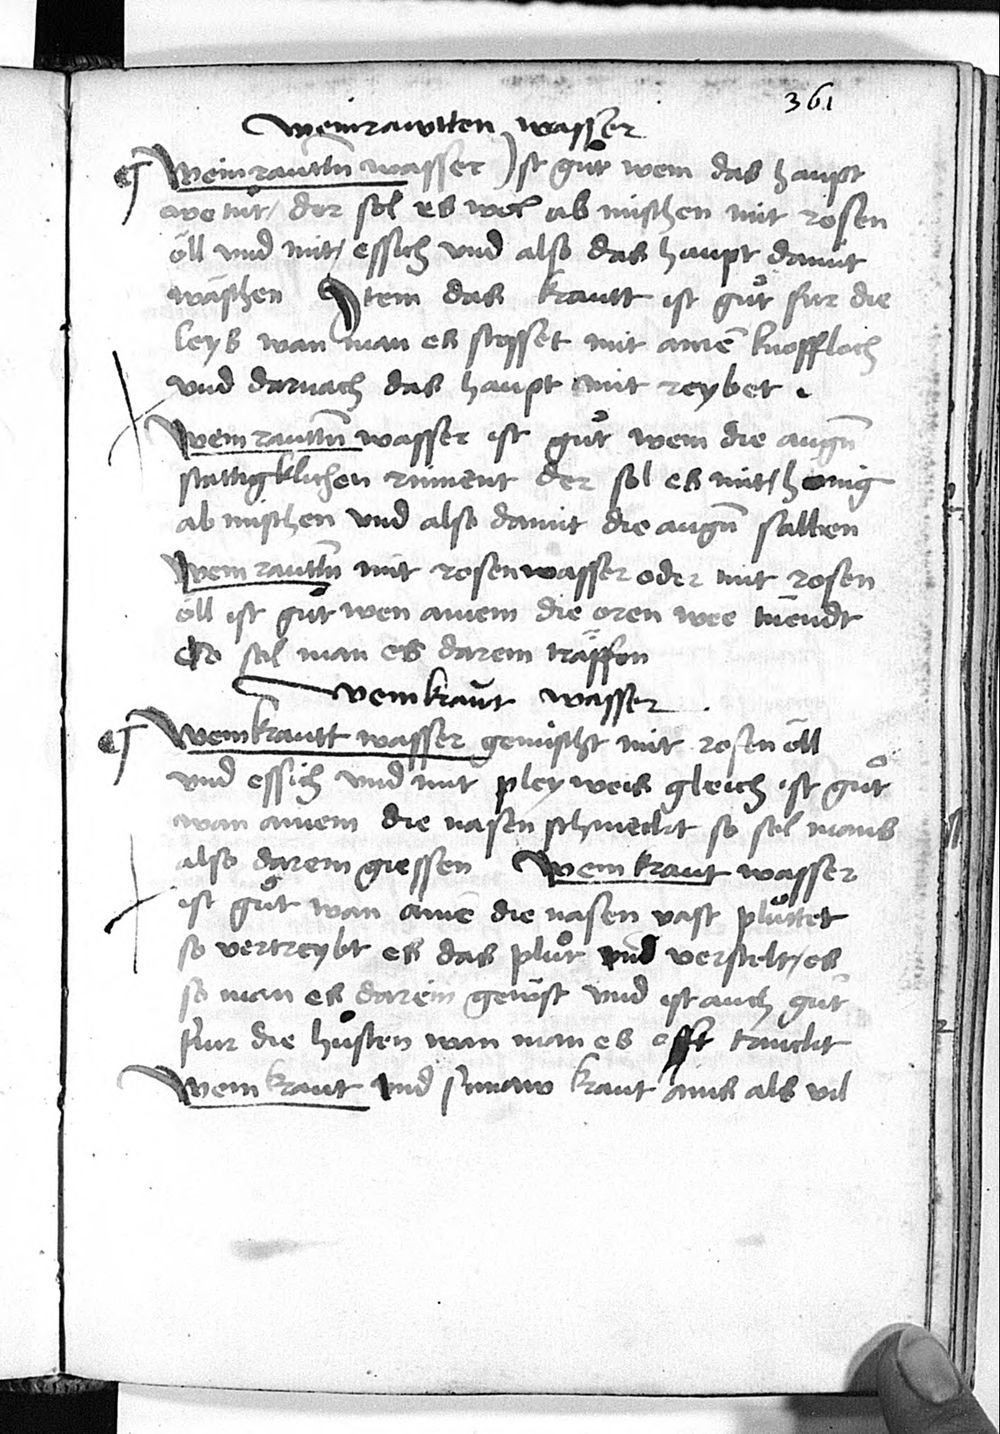 361
weinrawtten wasser
¶ Weinrauttn̄ wasser Ist gůt wem das haupt
we tůt / der sol es wol ab mischen mit rosen
öll vnd mit / essich vnd also das haupt damit
wäschen Item das krautt ist gůt fur die
leys wan man es stosset mit ainē knoffloch
vnd darnach das haupt mit reybet .
Weinrauttn̄ wasser ist gůt wem die augn̄
stattigklichen rinnent der sol es mit / honig
ab mischen vnd also damit die augn̄ salben
Weinrauttn̄ mit rosenwasser oder mit rosen
öll ist gůt wen ainem die oren wee tůendt
so sol man es darein träpffen
weinkraut wasser
¶ Weinkrautt wasser gemischt mit rosen öll
vnd essich vnd mit pleyweis gleich ist gůt
wan ainem die nasen schmeckt so sol mans
also darein giessen Weinkraut wasser
ist gůt wan ainē die nasen vast plůttet
so vertreybt es das plůt vnd verstelt / es
so man es darein gewst vnd ist auch gůt
für die hůsten wan man es offt trinckt
Weinkraut vnd kraut ains als vil